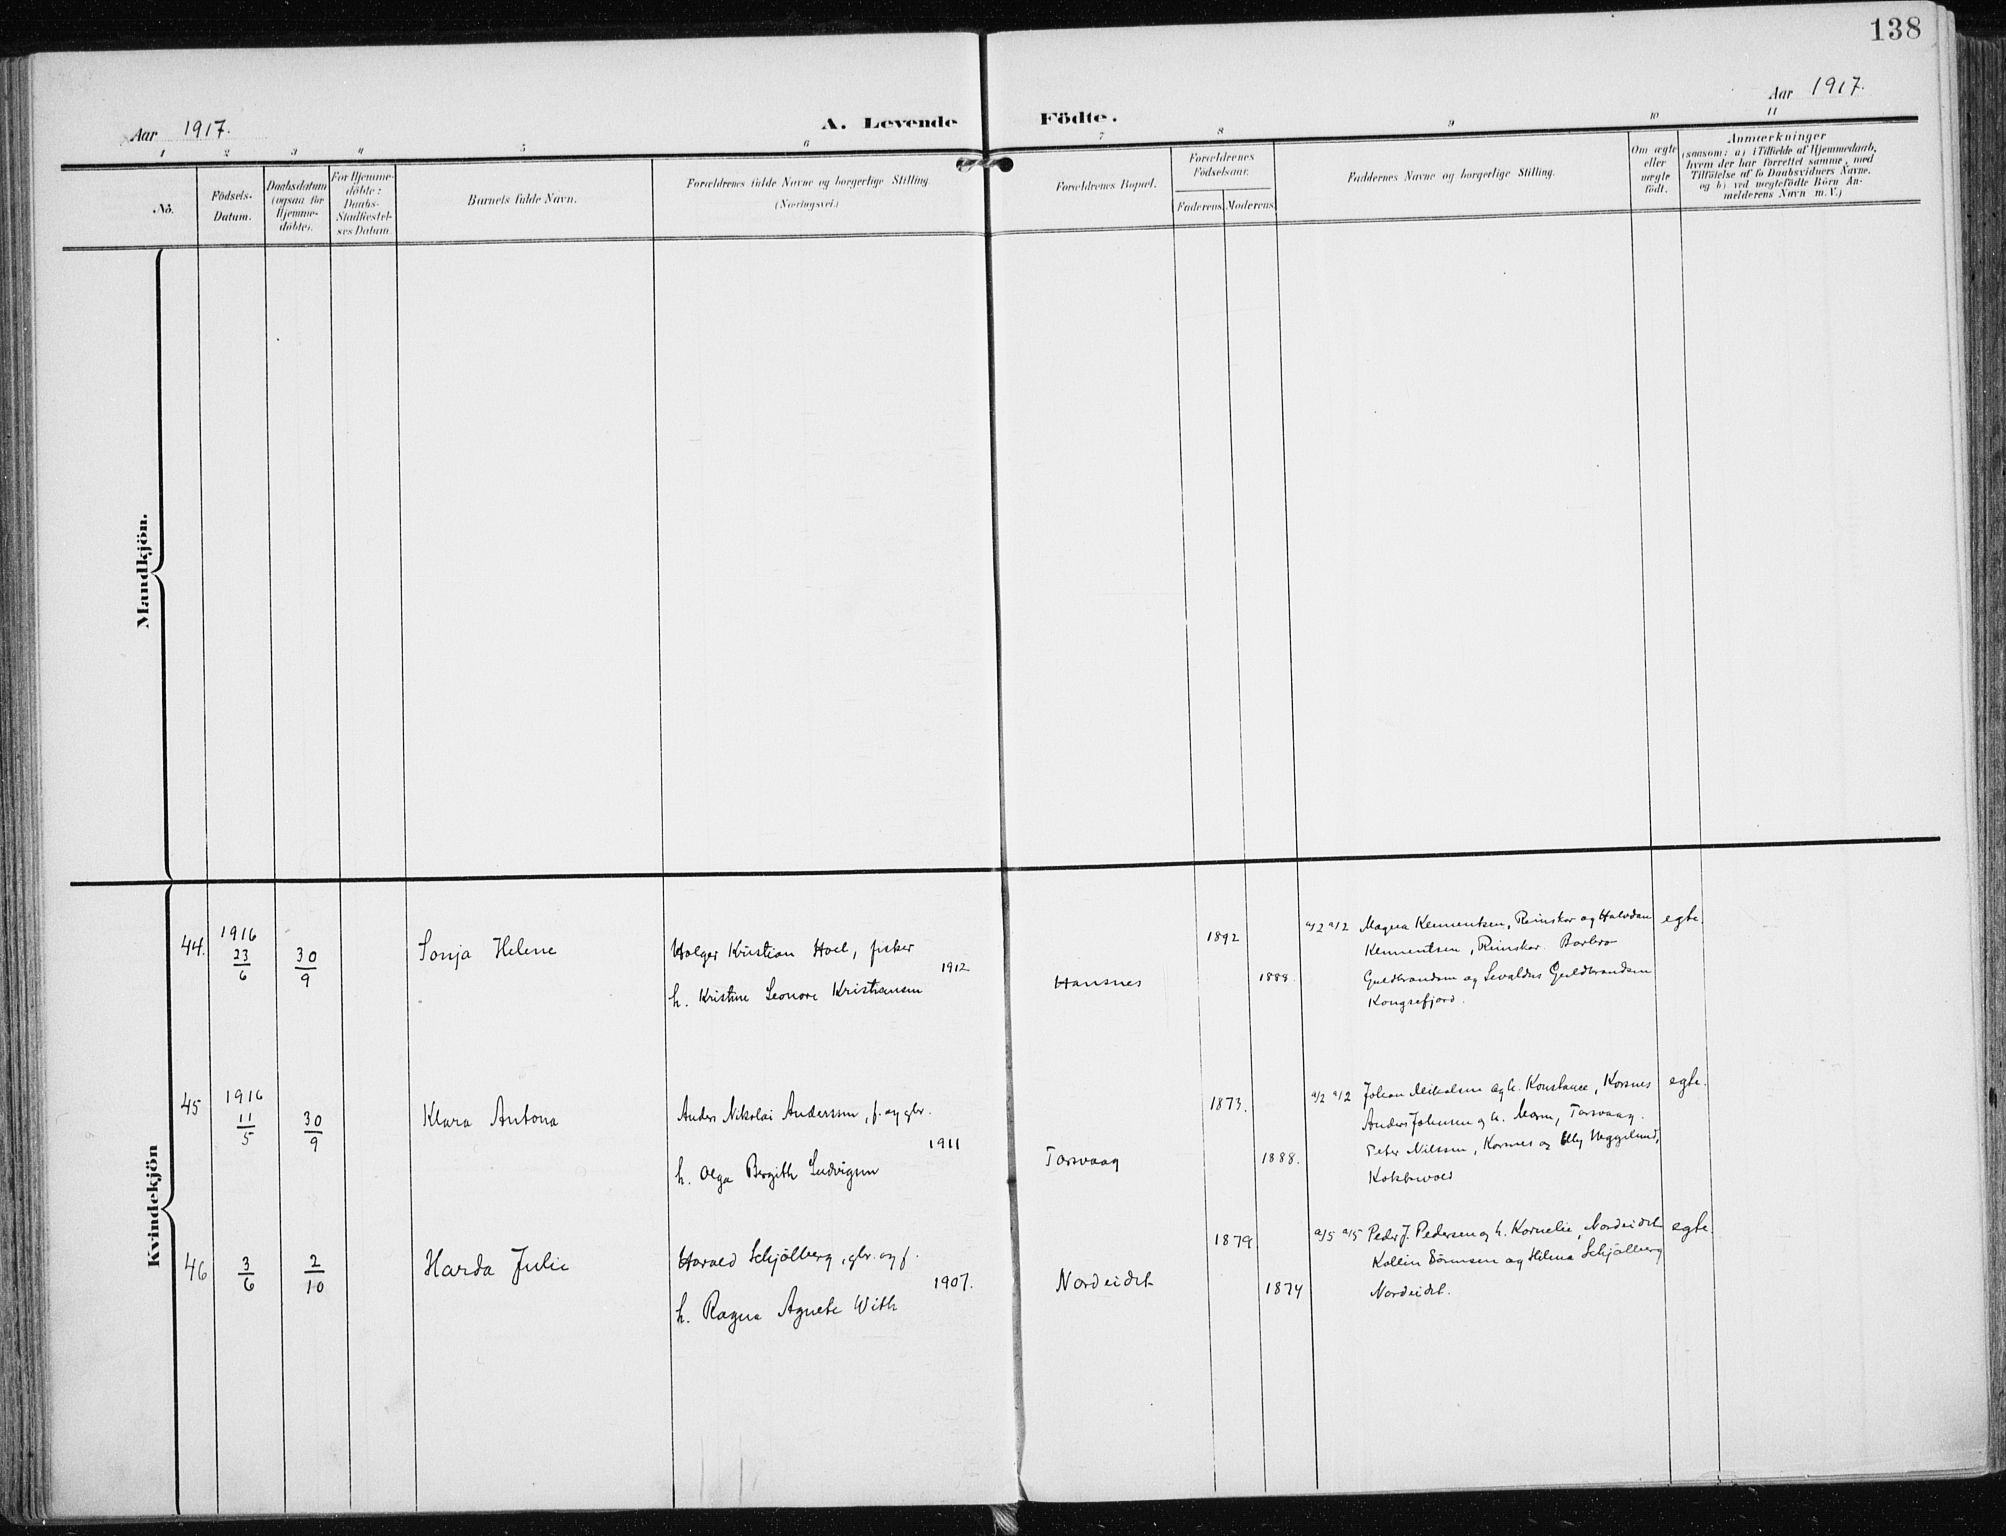 138
Aar 1917.
A. Levende Födte.
Aar 1917.
1 2 3 4 5 6 7 8 9 10 11
No.
Födsels-
Datum.
Daabsdatum
(ogsaa for
Hjemme-
döbte).
For Hjemme-
döbte:
Daabs-
Stadfæstel-
ses Datum.
Barnets fulde Navn.
Forældrenes fulde Navne og borgerlige Stilling.
(Næringsvei.)
Forældrenes Bopæl.
Forældrenes
Födselsaar.
Faderens. Moderens.
Faddernes Navne og borgerlige Stilling.
Om ægte
eller
uægte
födt.
Anmærkninger
(saasom: a) i Tilfælde af Hjemmedaab,
hvem der har forrettet samme, med
Tilföielse af to Daabsvidners Navne.
og b) ved uægtefödte Börn An-
melderens Navn m. V.)
Mandkjön.
Kvindekjön
44.
1916
23/6
30/9
Sonja Helene
Holger Kristian Hoel, fisker
1912
h. Kristine Leonore Kristiansen
Hansnes
1892
1888.
a/2 a/2 Magna Klementsen, Reinskar og Halvdan
Klementsen, Reinskar. Barbro
Guldbrandsen og Sevaldus Guldbrandsen
Kongsefjord.
egte.
45
1916
11/5
30/9
Klara Antona
Anders Nikolai Anderssen, f. og gbr.
1911
h. Olga Bergith Ludvigsen
Torsvaag
1873.
1888.
a/2 a/2 Johan Mikalsen og h. Konstance, Korsnes
Anders Johnsen og h. Torsvaag.
Peter Nilssen, Korsnes og Elly Heggelund,
egte.
46
3/6
2/10
Harda Julie
Harald Schjölberg, gbr. og f.
1907.
h. Ragna Agnete With
Nordeidet
1879
1874
a/5 a/5 Peder J. Pedersen og h. Kornelie, Nordeidet
Kollin Sörensen og Helena Schjölberg
Nordeidet.
egte.